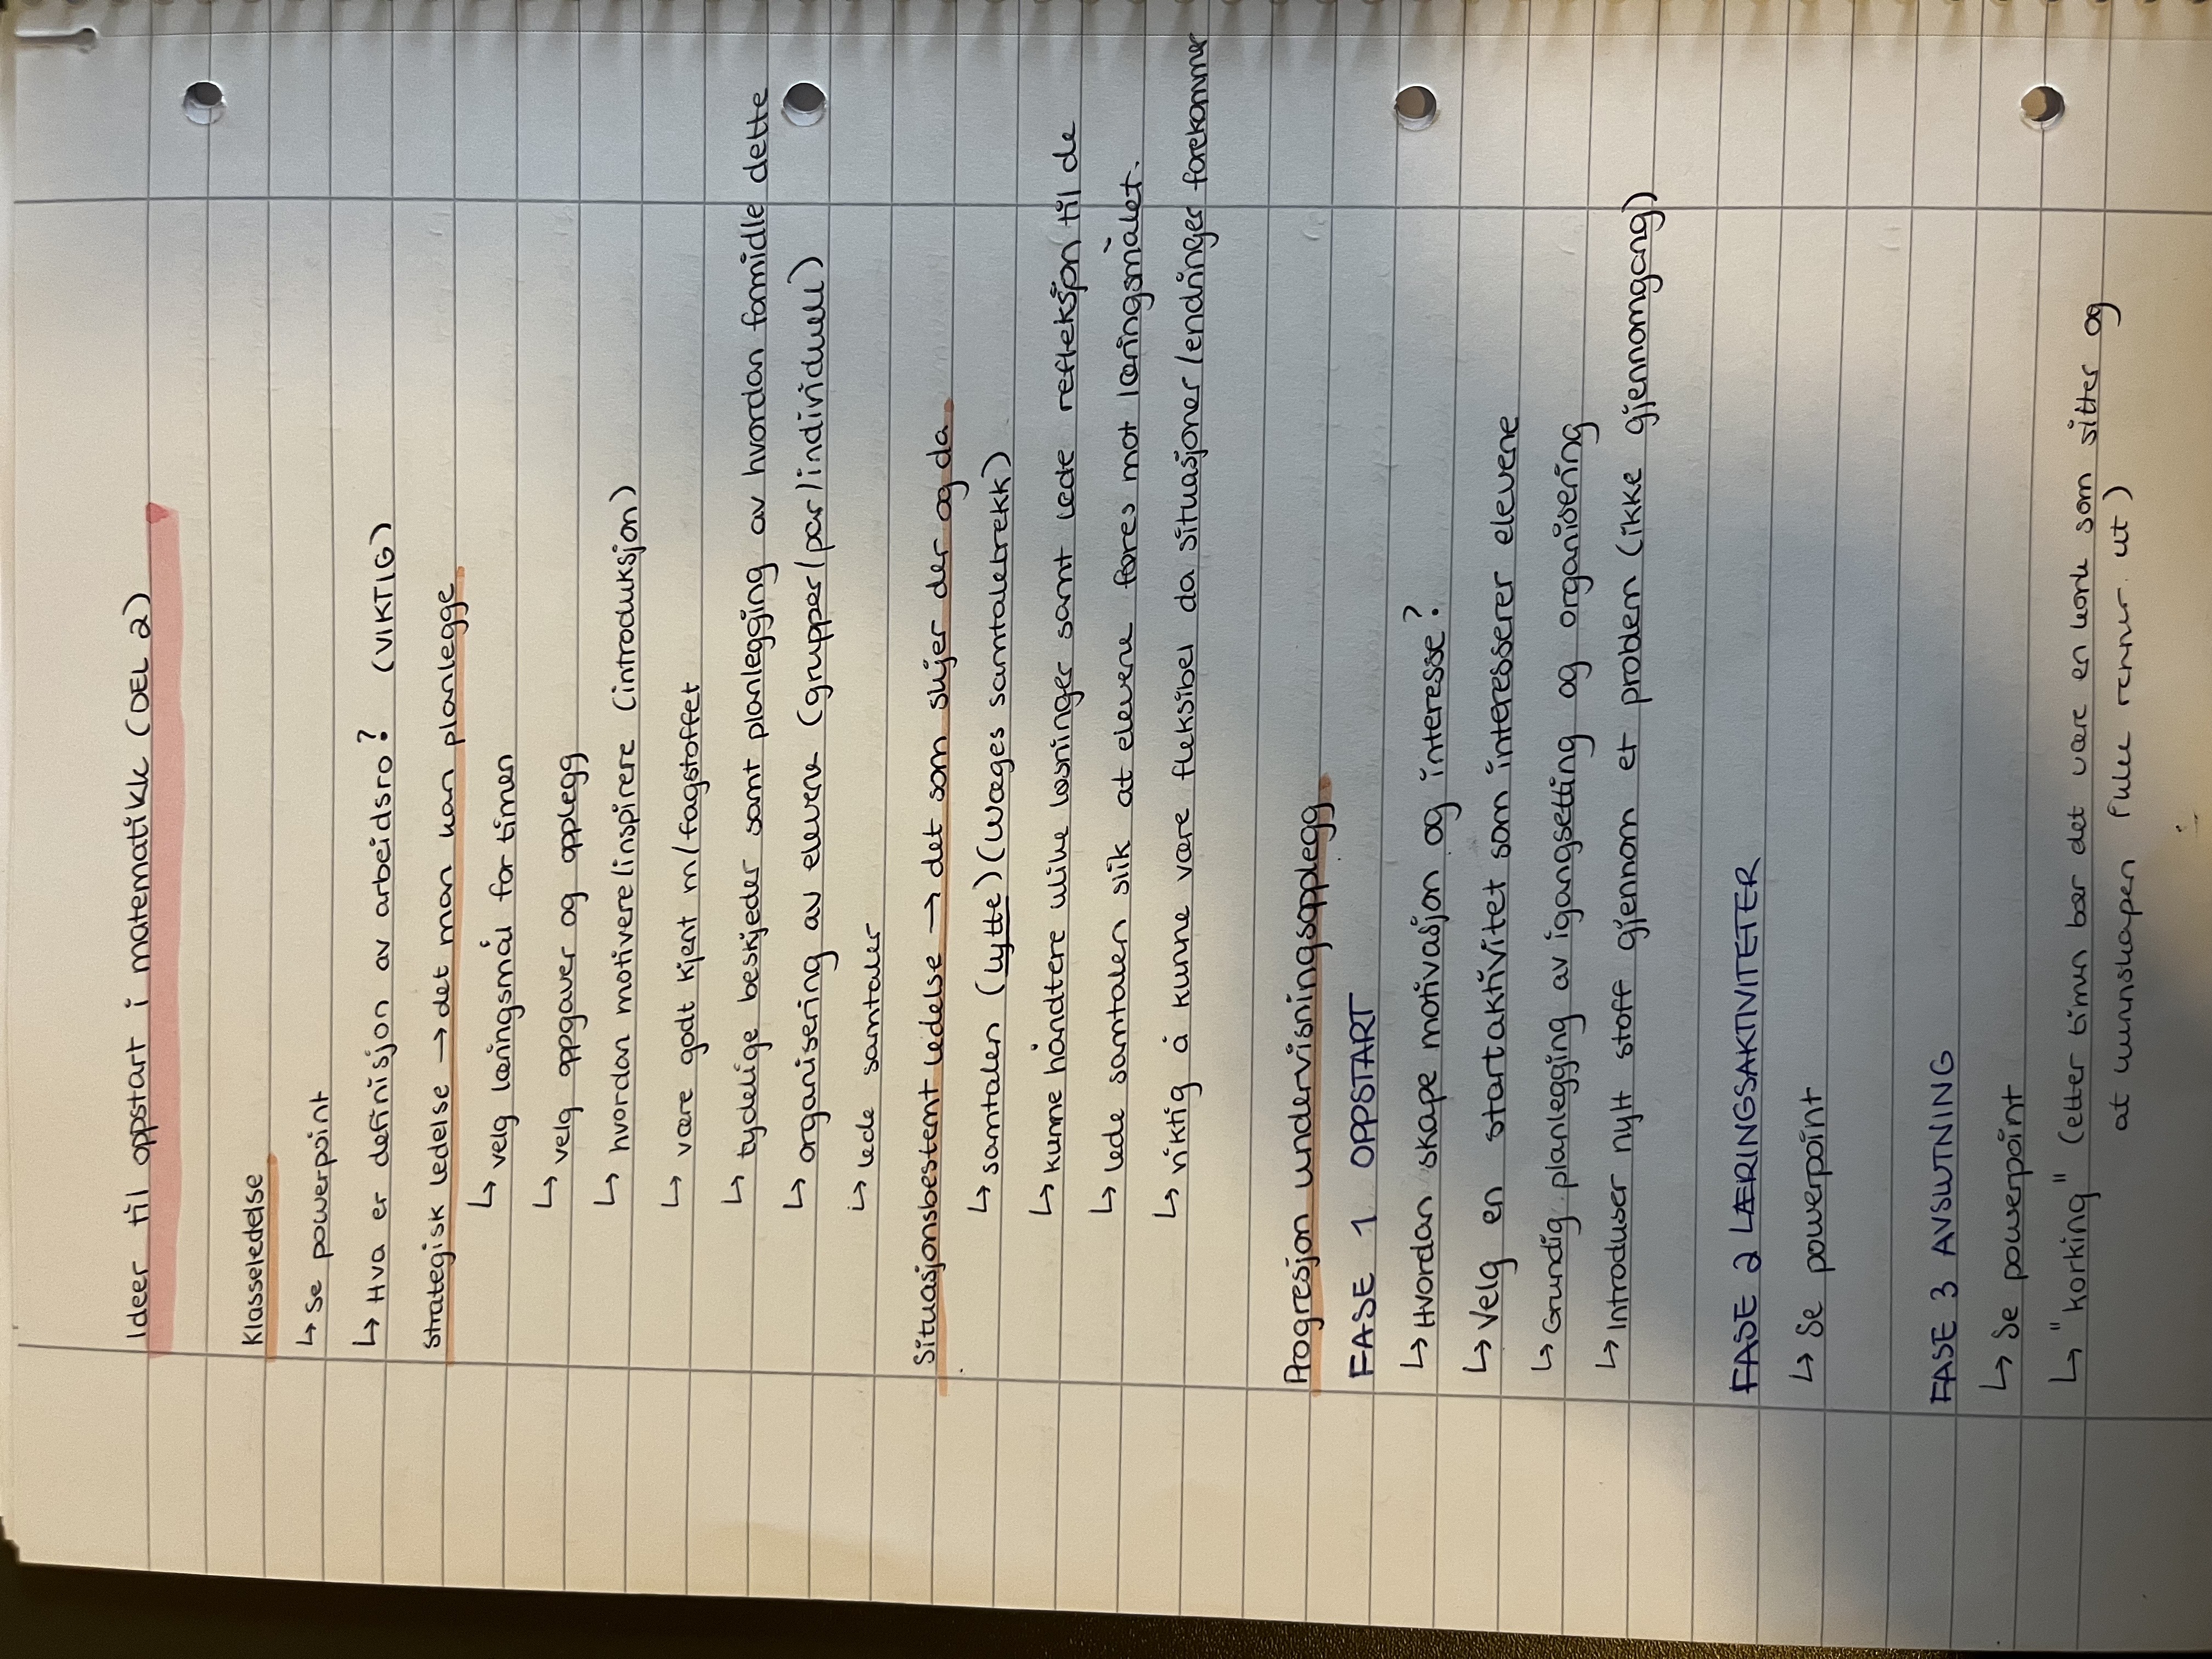 Ideer til oppstart i matematikk (DEL 2)
Klasseledelse
↳ Se powerpoint
↳ Hva er definisjon av arbeidsro? (VIKTIG)
Strategisk ledelse → det man kan planlegge
↳ velg læringsmål for timen
↳ velg oppgaver og opplegg
↳ hvordan motivere/inspirere (introduksjon)
↳ være godt kjent m/fagstoffet
↳ tydelige beskjeder samt planlegging av hvordan formidle dette
↳ organisering av elevene (grupper/par/individuell)
↳ lede samtaler
Situasjonsbestemt ledelse → det som skjer der og da
↳ samtalen (lytte) (Wæges samtaletrekk)
↳ kunne håndtere ulike løsninger samt lede refleksjon til de
↳ lede samtalen slik at elevene føres mot læringsmålet.
↳ viktig å kunne være fleksibel da situasjoner/endringer forekommer
Progresjon undervisningsopplegg
FASE 1 OPPSTART
↳ Hvordan skape motivasjon og interesse?
↳ Velg en startaktivitet som interesserer elevene
↳ Grundig planlegging av igangsetting og organisering
↳ Introduser nytt stoff gjennom et problem (ikke gjennomgang)
FASE 2 LÆRINGSAKTIVITETER
↳ Se powerpoint
FASE 3 AVSLUTNING
↳ Se powerpoint
↳ "korking" (etter timen bør det være en kork som sitter og
at kunnskapen ikke renner ut)